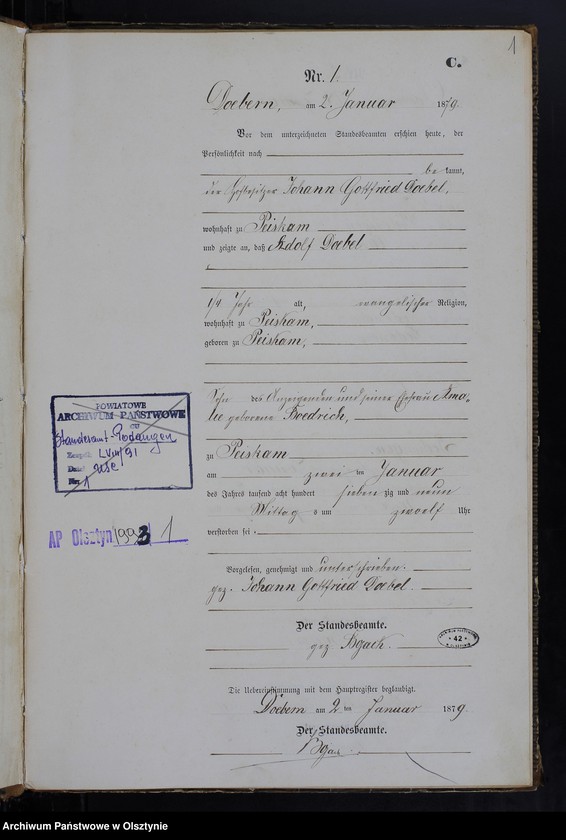 1
C.
Nr. 1.
Doebern, am 2. Januar 1879.
Vor dem unterzeichneten Standesbeamten erschien heute, der
Persönlichkeit nach
be kannt,
der Hofbesitzer Johann Gottfried Doebel,
wohnhaft zu Peiskam
und zeigte an, daß Adolf Doebel
1/4 Jahr alt, evangelischer Religion,
wohnhaft zu Peiskam,
geboren zu Peiskam,
Sohn des Anzeigenden und seiner Ehefrau Ama-
lie geborene Boedrich,
zu Peiskam
am zwei ten Januar
des Jahres tausend acht hundert sieben zig und neun
Mittag s um zwoelf Uhr
verstorben sei.
Vorgelesen, genehmigt und unterschrieben.
gez. Johann Gottfried Doebel.
Der Standesbeamte.
gez
Die Uebereinstimmung mit dem Hauptregister beglaubigt.
Döbern am 2 ten Januar 1879.
Der Standesbeamte.
POWIATOWE
ARCHIWUM PAŃSTWOWE
Standesamt
Zespół LVIII/91
Dział USC
Nr. 1
AP Olsztyn 1993 1
42
Archiwum Państwowe w Olsztynie